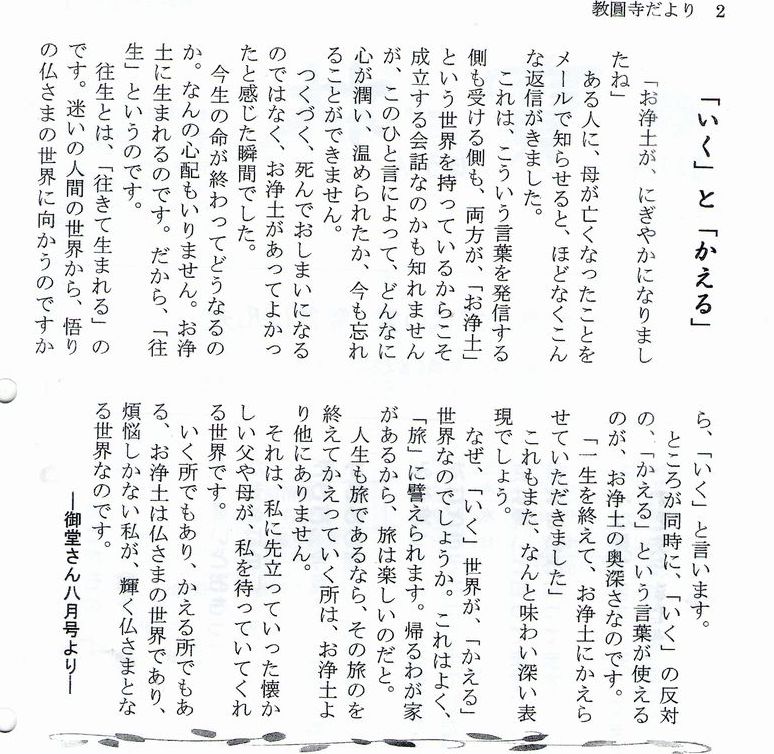 教圓寺だより 2
「いく」と「かえる」
「お浄土が、にぎやかになりまし
たね」
ある人に、母が亡くなったことを
メールで知らせると、ほどなくこん
な返信がきました。
これは、こういう言葉を発信する
側も受ける側も、両方が、「お浄土」
という世界を持っているからこそ
成立する会話なのかも知れません
が、このひと言によって、どんなに
心が潤い、温められたか、今も忘れ
ることができません。
つくづく、死んでおしまいになる
のではなく、お浄土があってよかっ
たと感じた瞬間でした。
今生の命が終わってどうなるの
か。なんの心配もいりません。お浄
土に生まれるのです。だから、「往
生」というのです。
往生とは、「往きて生まれる」の
です。迷いの人間の世界から、悟り
の仏さまの世界に向かうのですか
ら、「いく」と言います。
ところが同時に、「いく」の反対
の、「かえる」という言葉が使える
のが、お浄土の奥深さなのです。
「一生を終えて、お浄土にかえら
せていただきました」
これもまた、なんと味わい深い表
現でしょう。
なぜ、「いく」世界が、「かえる」
世界なのでしょうか。これはよく、
「旅」に譬えられます。帰るわが家
があるから、旅は楽しいのだと。
人生も旅であるなら、その旅のを
終えてかえっていく所は、お浄土よ
り他にありません。
それは、私に先立っていった懐か
しい父や母が、私を待っていてくれ
る世界です。
いく所でもあり、かえる所でもあ
る、お浄土は仏さまの世界であり、
煩悩しかない私が、輝く仏さまとな
る世界なのです。
―御堂さん八月号より―